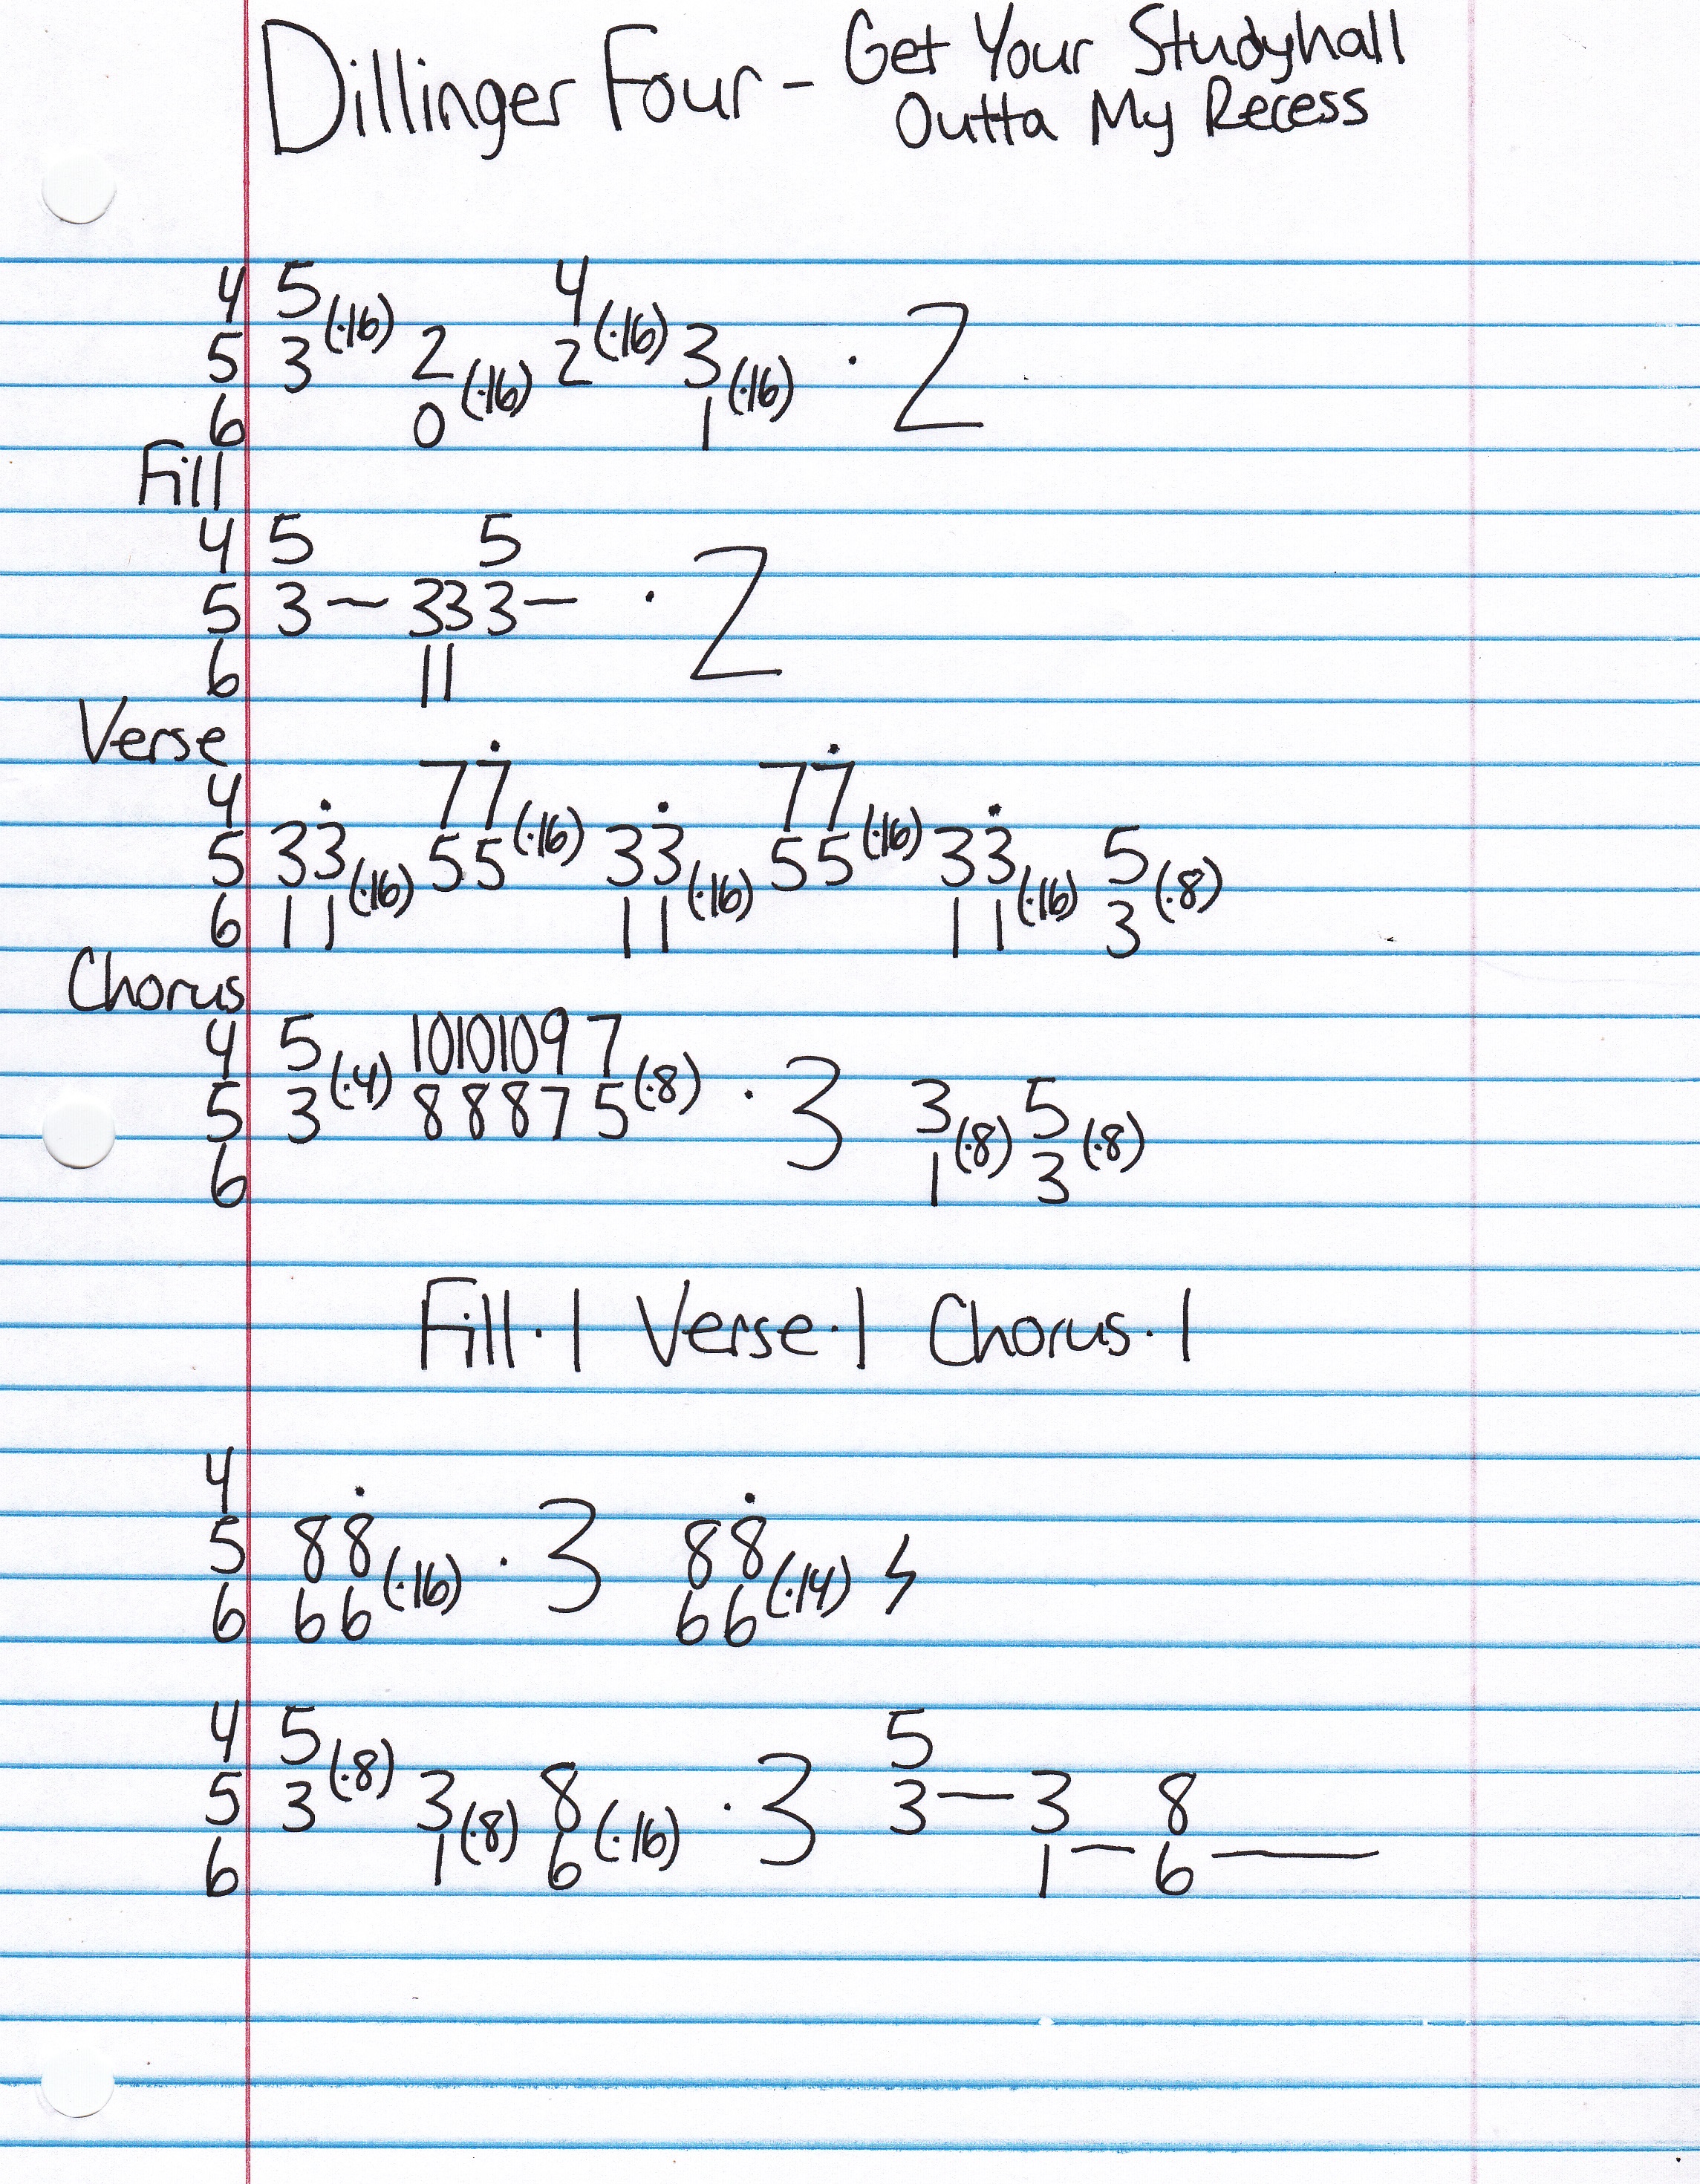 Dillinger Four - Get Your Studyhall
Outta My Recess
4 5 (·16) 4 (·16)
5 3 2 (·16) 2 3 (·16) · 2
6 0 1
Fill
4 5 5
5 3 — 3 3 3 — · 2
6 1 1
Verse
4 7 7̇ (·16) 7 7̇ (·16)
5 3 3̇ (·16) 5 5 3 3̇ (·16) 5 5 3 3̇ (·16) 5 (·8)
6 1 1 1 1 1 1 3
Chorus
4 5 (·4) 10 10 10 9 7 (·8)
5 3 8 8 8 7 5 · 3 3 (·8) 5 (·8)
6 1 3
Fill · 1 Verse · 1 Chorus · 1
4
5 8 8̇ (·16) · 3 8 8̇ (·14)
6 6 6 6 6
4 5 (·8) 5
5 3 3 (·8) 8 (·16) · 3 3 — 3 8
6 1 6 1 — 6 —